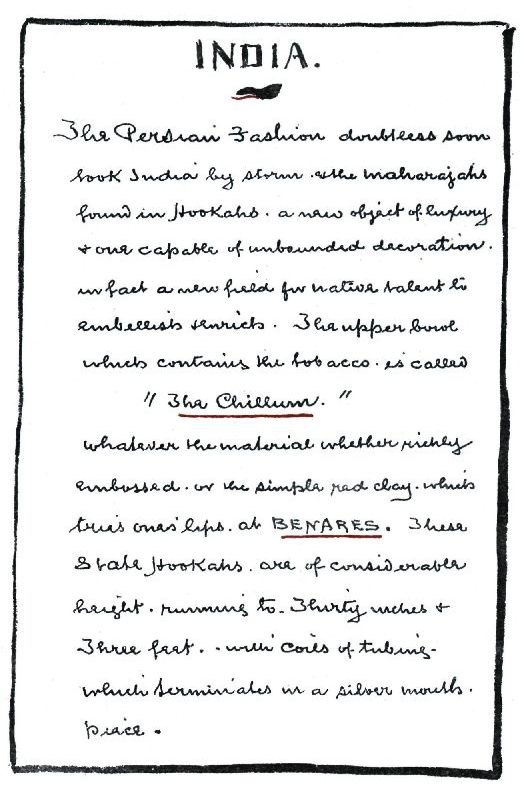 INDIA.
The Persian Fashion doubtless soon
took India by storm. & the maharajahs
found in Hookahs. a new object of luxury
& one capable of unbounded decoration.
in fact a new field for native talent to
embellish & enrich. The upper bowl
which contains the tobacco. is called
" The Chillum. "
whatever the material whether richly
embossed. or the simple red clay. which
tries ones' lips. at BENARES. These
State Hookahs. are of considerable
height. running to - Thirty inches &
Three feet. - with coils of tubing -
which terminates in a silver mouth.
piece.